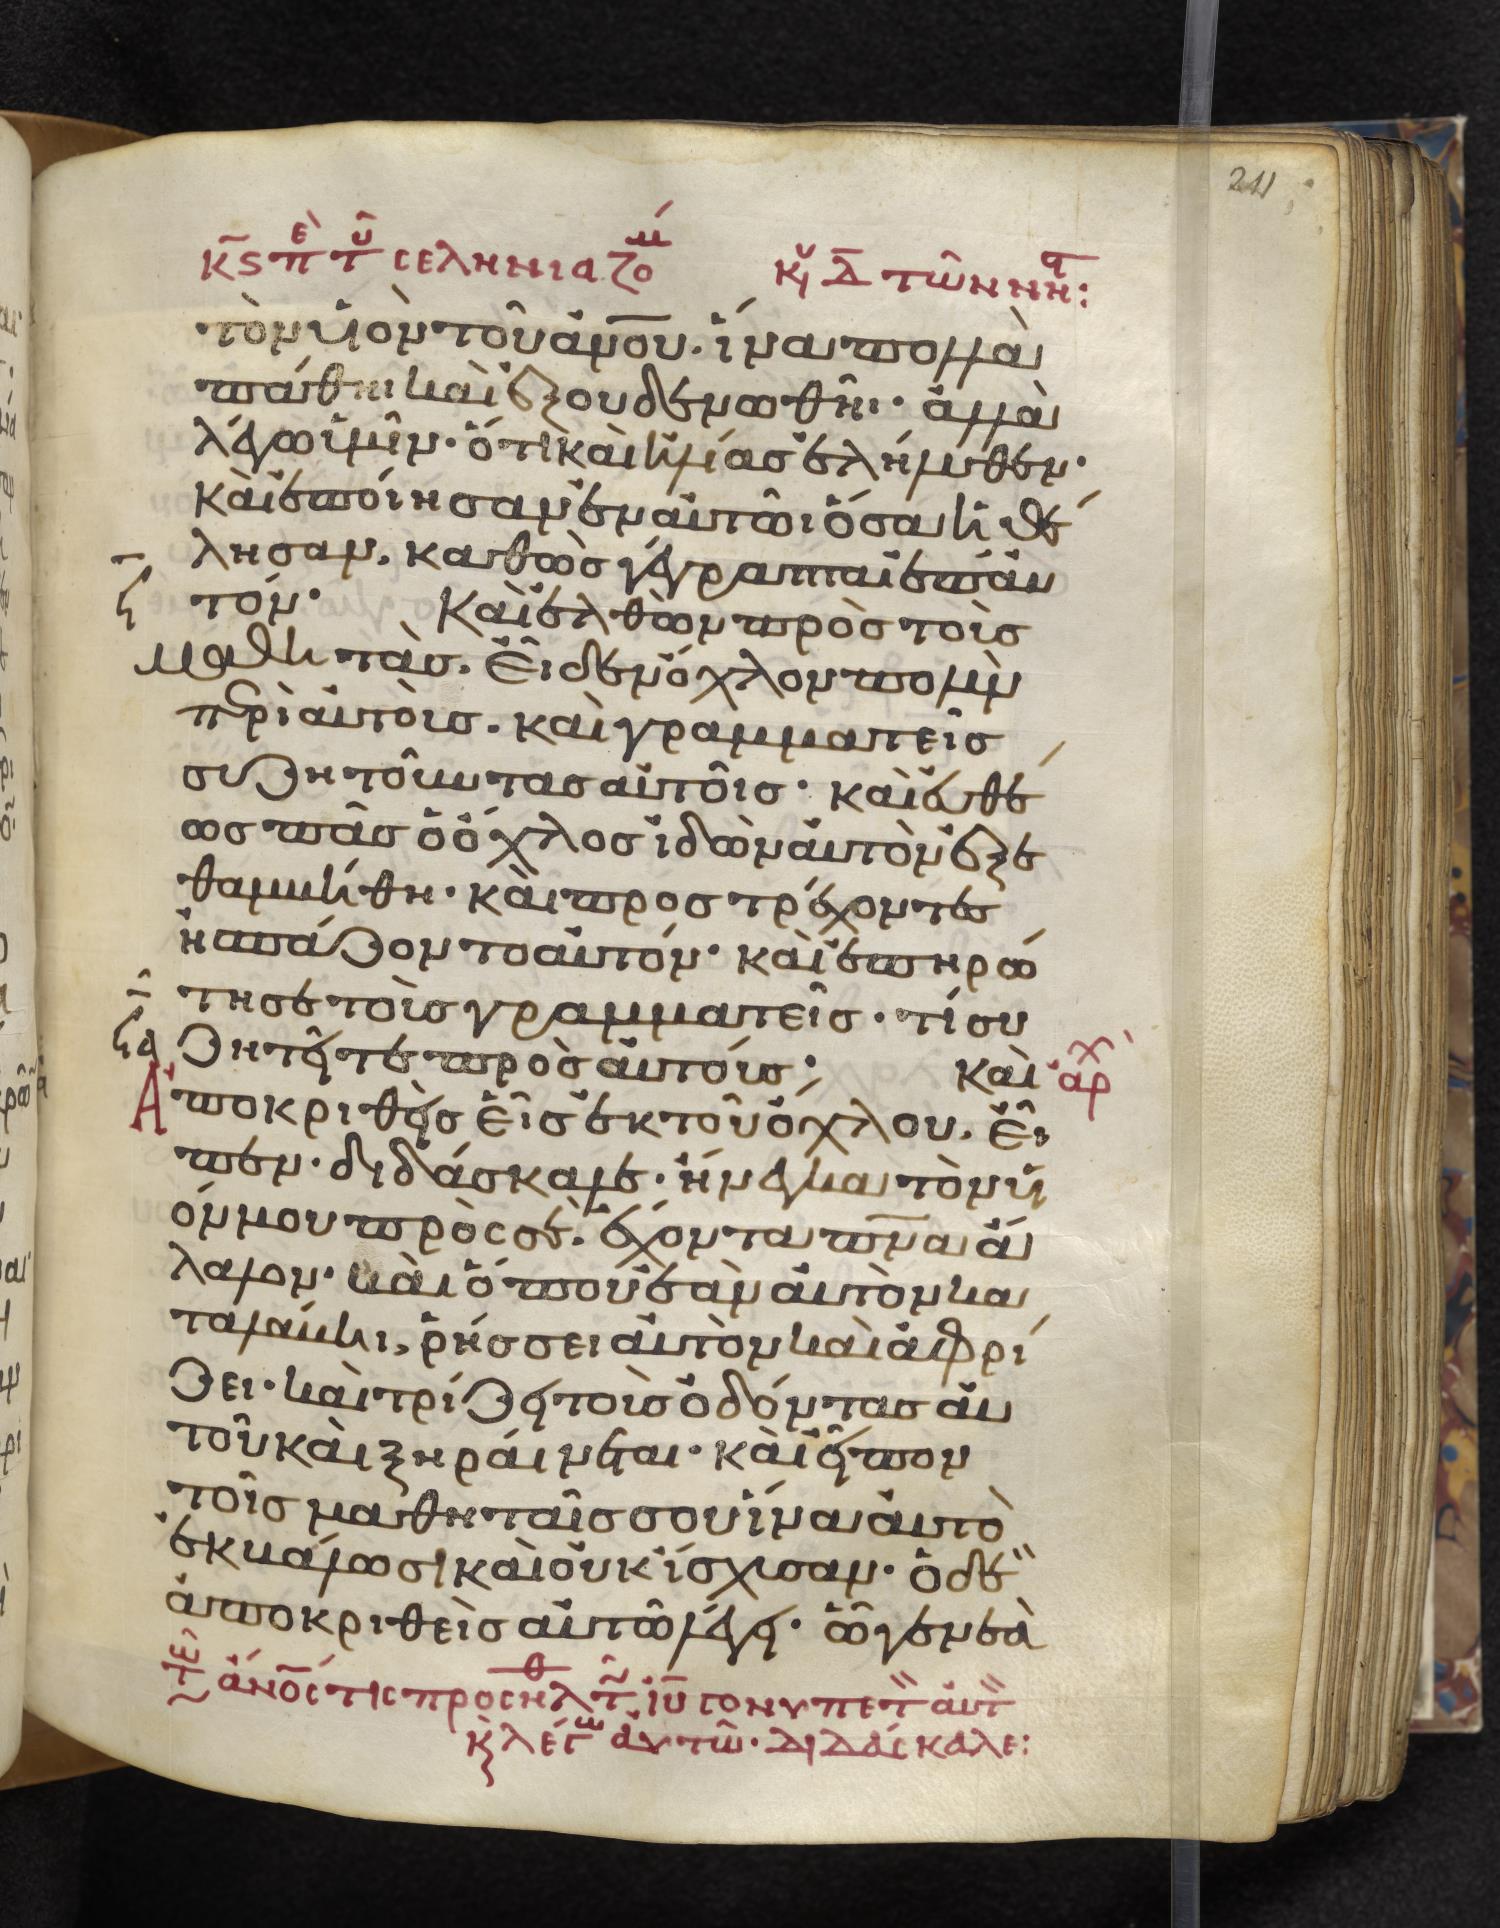 241
κ̅ϛ̅ π̅ὲ τ̅ῦ σεληνιαζομ́ κυ̅ Δ̅ τῶν νηϛ̅:
τὸν υἱὸν τοῦ ἀν̅ου. ἵνα πολλὰ
πάθηι καὶ ἐξουδενωθῆι· ἀλλὰ
λέγω ὑμῖν· ὅτι καὶ ἠλίας ἐλήλυθεν·
καὶ ἐποίησαν ἐν αὐτῶι ὅσα ἠθέ
λησαν. καθὼς γέγραπται ἐπ αὐ
τόν· Καὶ ἐλθὼν πρὸς τοὺς
μαθητὰς. εἶδεν ὄχλον πολὺν
περὶ αὐτοὺς. καὶ γραμματεῖς
συζητοῦντας αὐτοῖς· καὶ εὐθέ
ως πᾶς ὁ ὄχλος ἰδὼν αὐτὸν ἐξε
θαμβήθη· καὶ προστρέχοντες
ἠσπάζοντο αὐτόν· καὶ ἐπηρώ
τησε τοὺς γραμματεῖς· τί συ
ζητεῖτε πρὸς αὐτούς; καὶ ἀρχ̀
Ἀποκριθεὶς εἷς ἐκ τοῦ ὄχλου. εἶ
πεν· διδάσκαλε· ἤνεγκα τὸν υἱ
όν μου πρὸς σὲ. ἔχοντα πν̅α ἄ
λαλον· καὶ ὅπου ἐὰν αὐτὸν κα
ταλάβηι, ῥήσσει αὐτὸν καὶ ἀφρί
ζει· καὶ τρίζει τοὺς ὀδόντας αὐ
τοῦ καὶ ξηραίνεται· καὶ εἶπον
τοῖς μαθηταῖς σου ἵνα αὐτὸ
ἐκβάλωσι καὶ οὐκ ἴσχυσαν· ὁ δὲ
ἀποκριθεὶς αὐτῶ λέγει· ὦ γενεὰ
ἄν̅ο̅ς τὶς προσηλθ τ̅ ἰ̅υ̅ γονυπετ̏ αὐτ̏
κ̀ λέγω̅ αὐτῶ· διδάσκαλε: